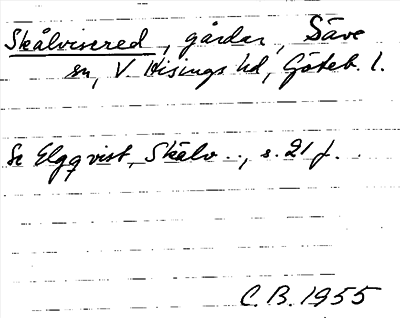 Skålvisered, gårdar, Säve
sn, V. Hisings hd, Göteb. l.
Se Elgqvist, Skälv.., s. 21 f.
C.B. 1955